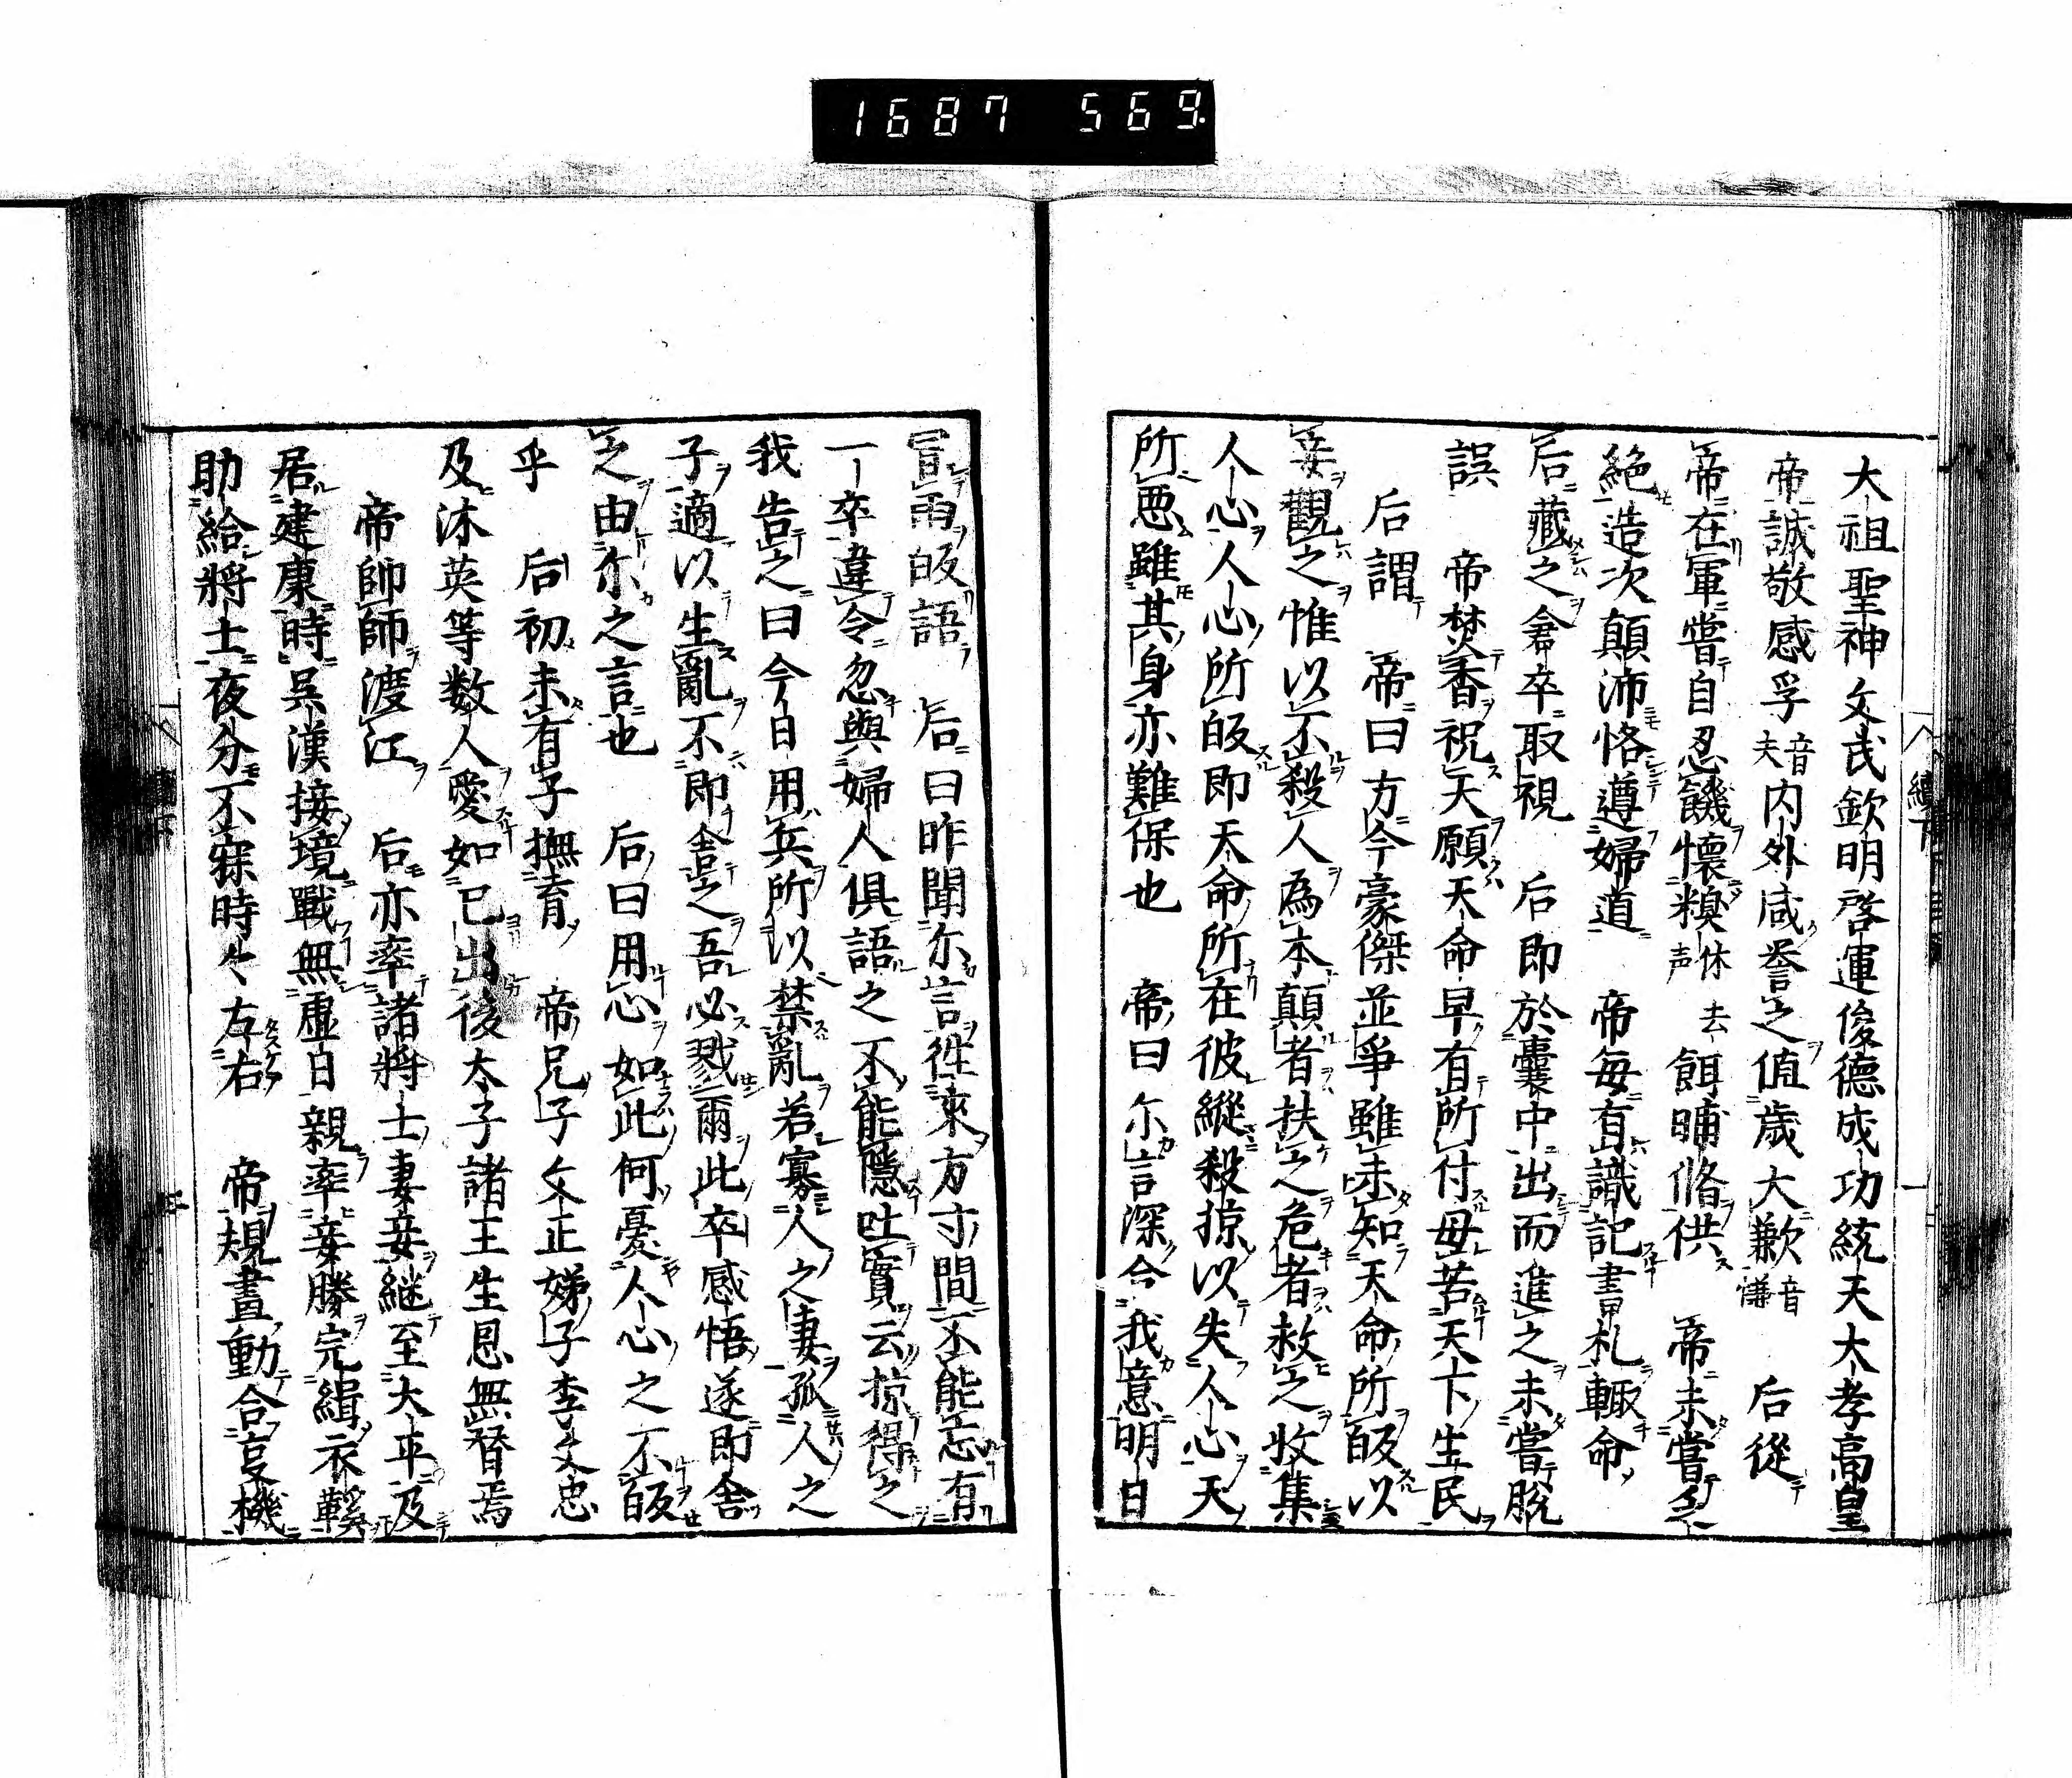 1687 569.
大祖聖神文武欽明啓運俊德成功統天大孝高皇
帝誠敬感孚音夫内外咸誉之值歳大歉音慊 后從
帝在軍嘗自忍饑懷糗去声餌晡脩供 帝未嘗乏
絶造次顛沛恪遵婦道 帝每有識記書札輒命
后藏之倉卒取視 后即於囊中出而進之未嘗脱
誤 帝焚香祝天願天命早有所付毋苦天下生民
后謂 帝曰方今豪傑並爭雖未知天命所皈以
妾觀之惟以不殺人為本顛者扶之危者救之收集
人心人心所皈即天命所在彼縱殺掠以失人心天
所悪雖其身亦難保也 帝曰尓言深合我意明日
冒雨皈語 后曰昨聞尓言徃來方寸間不能忘有
一卒違令忽與婦人俱語之不能隱吐實云掠得之
我告之曰今日用兵所以禁亂若寡人之妻孤人之
子適以生亂不即舎之吾必戮爾此卒感悟遂即舎
之由尓之言也 后曰用心如此何憂人心之不皈
乎 后初未有子撫育 帝兄子文正姊子李文忠
及沐英等数人愛如己出後太子諸王生恩無替焉
帝帥師渡江 后亦率諸將士妻妾継至大平及
居建康時吳漢接境戰無虚日親率妾媵完緝衣鞵
助給將士夜分不寐時々左右 帝規畫動合亊機